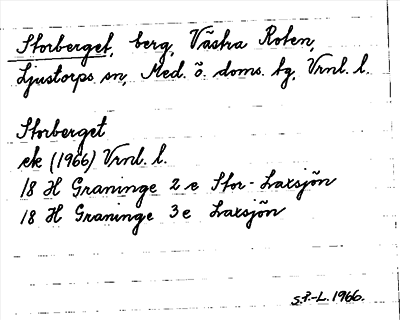 Storberget, berg, Västra Roten,
Ljustorps sn, Med. ö. doms. tg, Vrnl. l.
Storberget
ek (1966) Vrnl. l.
18 H Graninge 2 e Stor-Laxsjön
18 H Graninge 3 e Laxsjön
S.F.-L. 1966.